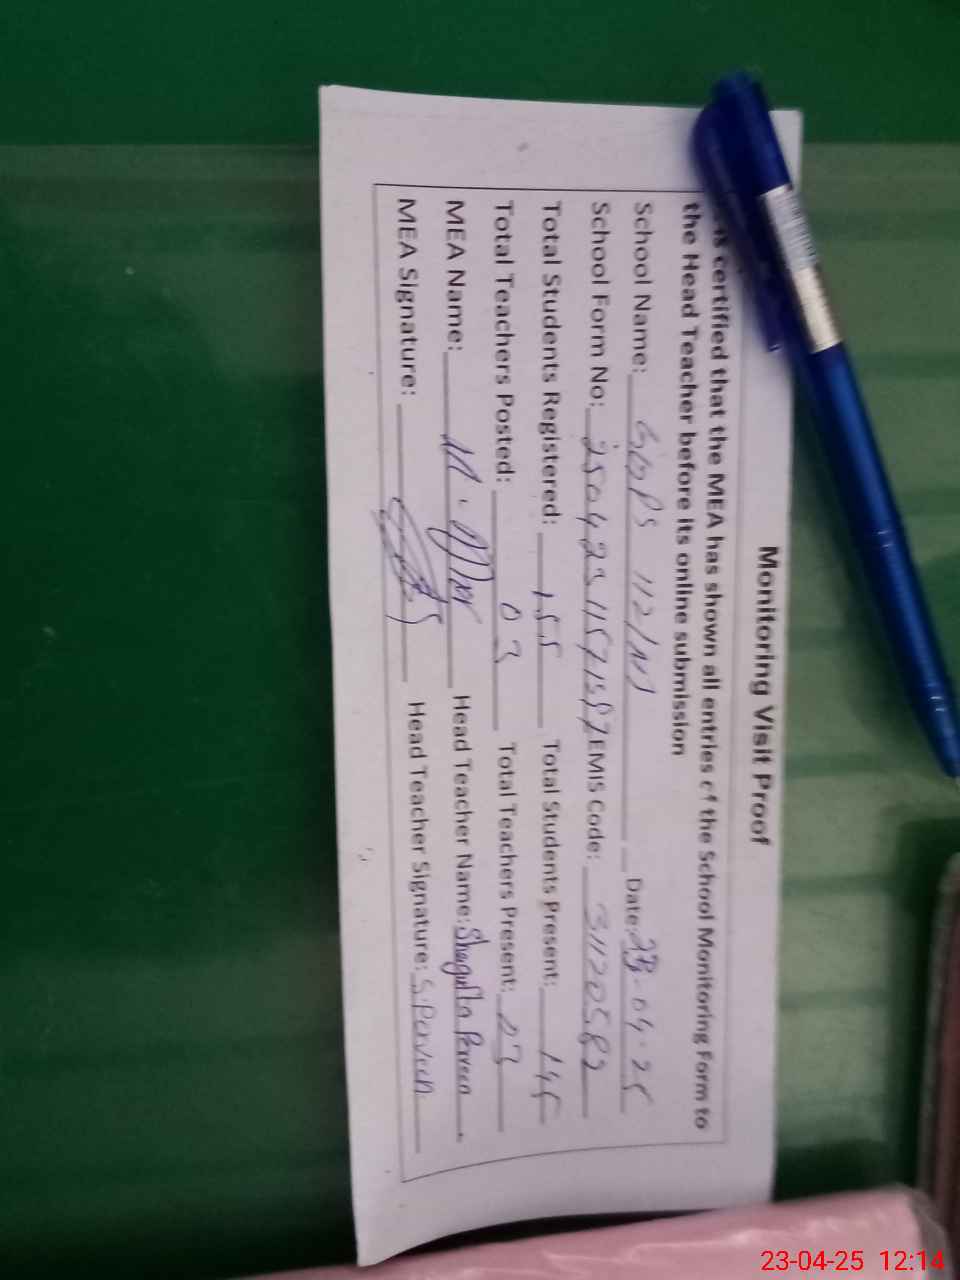 Monitoring Visit Proof
is certified that the MEA has shown all entries of the School Monitoring Form to
the Head Teacher before its online submission
School Name: GGPS 112/M Date: 23-04-25
School Form No: EMIS Code: 31120582
Total Students Registered: 155 Total Students Present: 145
Total Teachers Posted: 03 Total Teachers Present: 03
MEA Name: M. Head Teacher Name: Shagufta Perveen
MEA Signature: Head Teacher Signature: S.Perveen
23-04-25 12:14